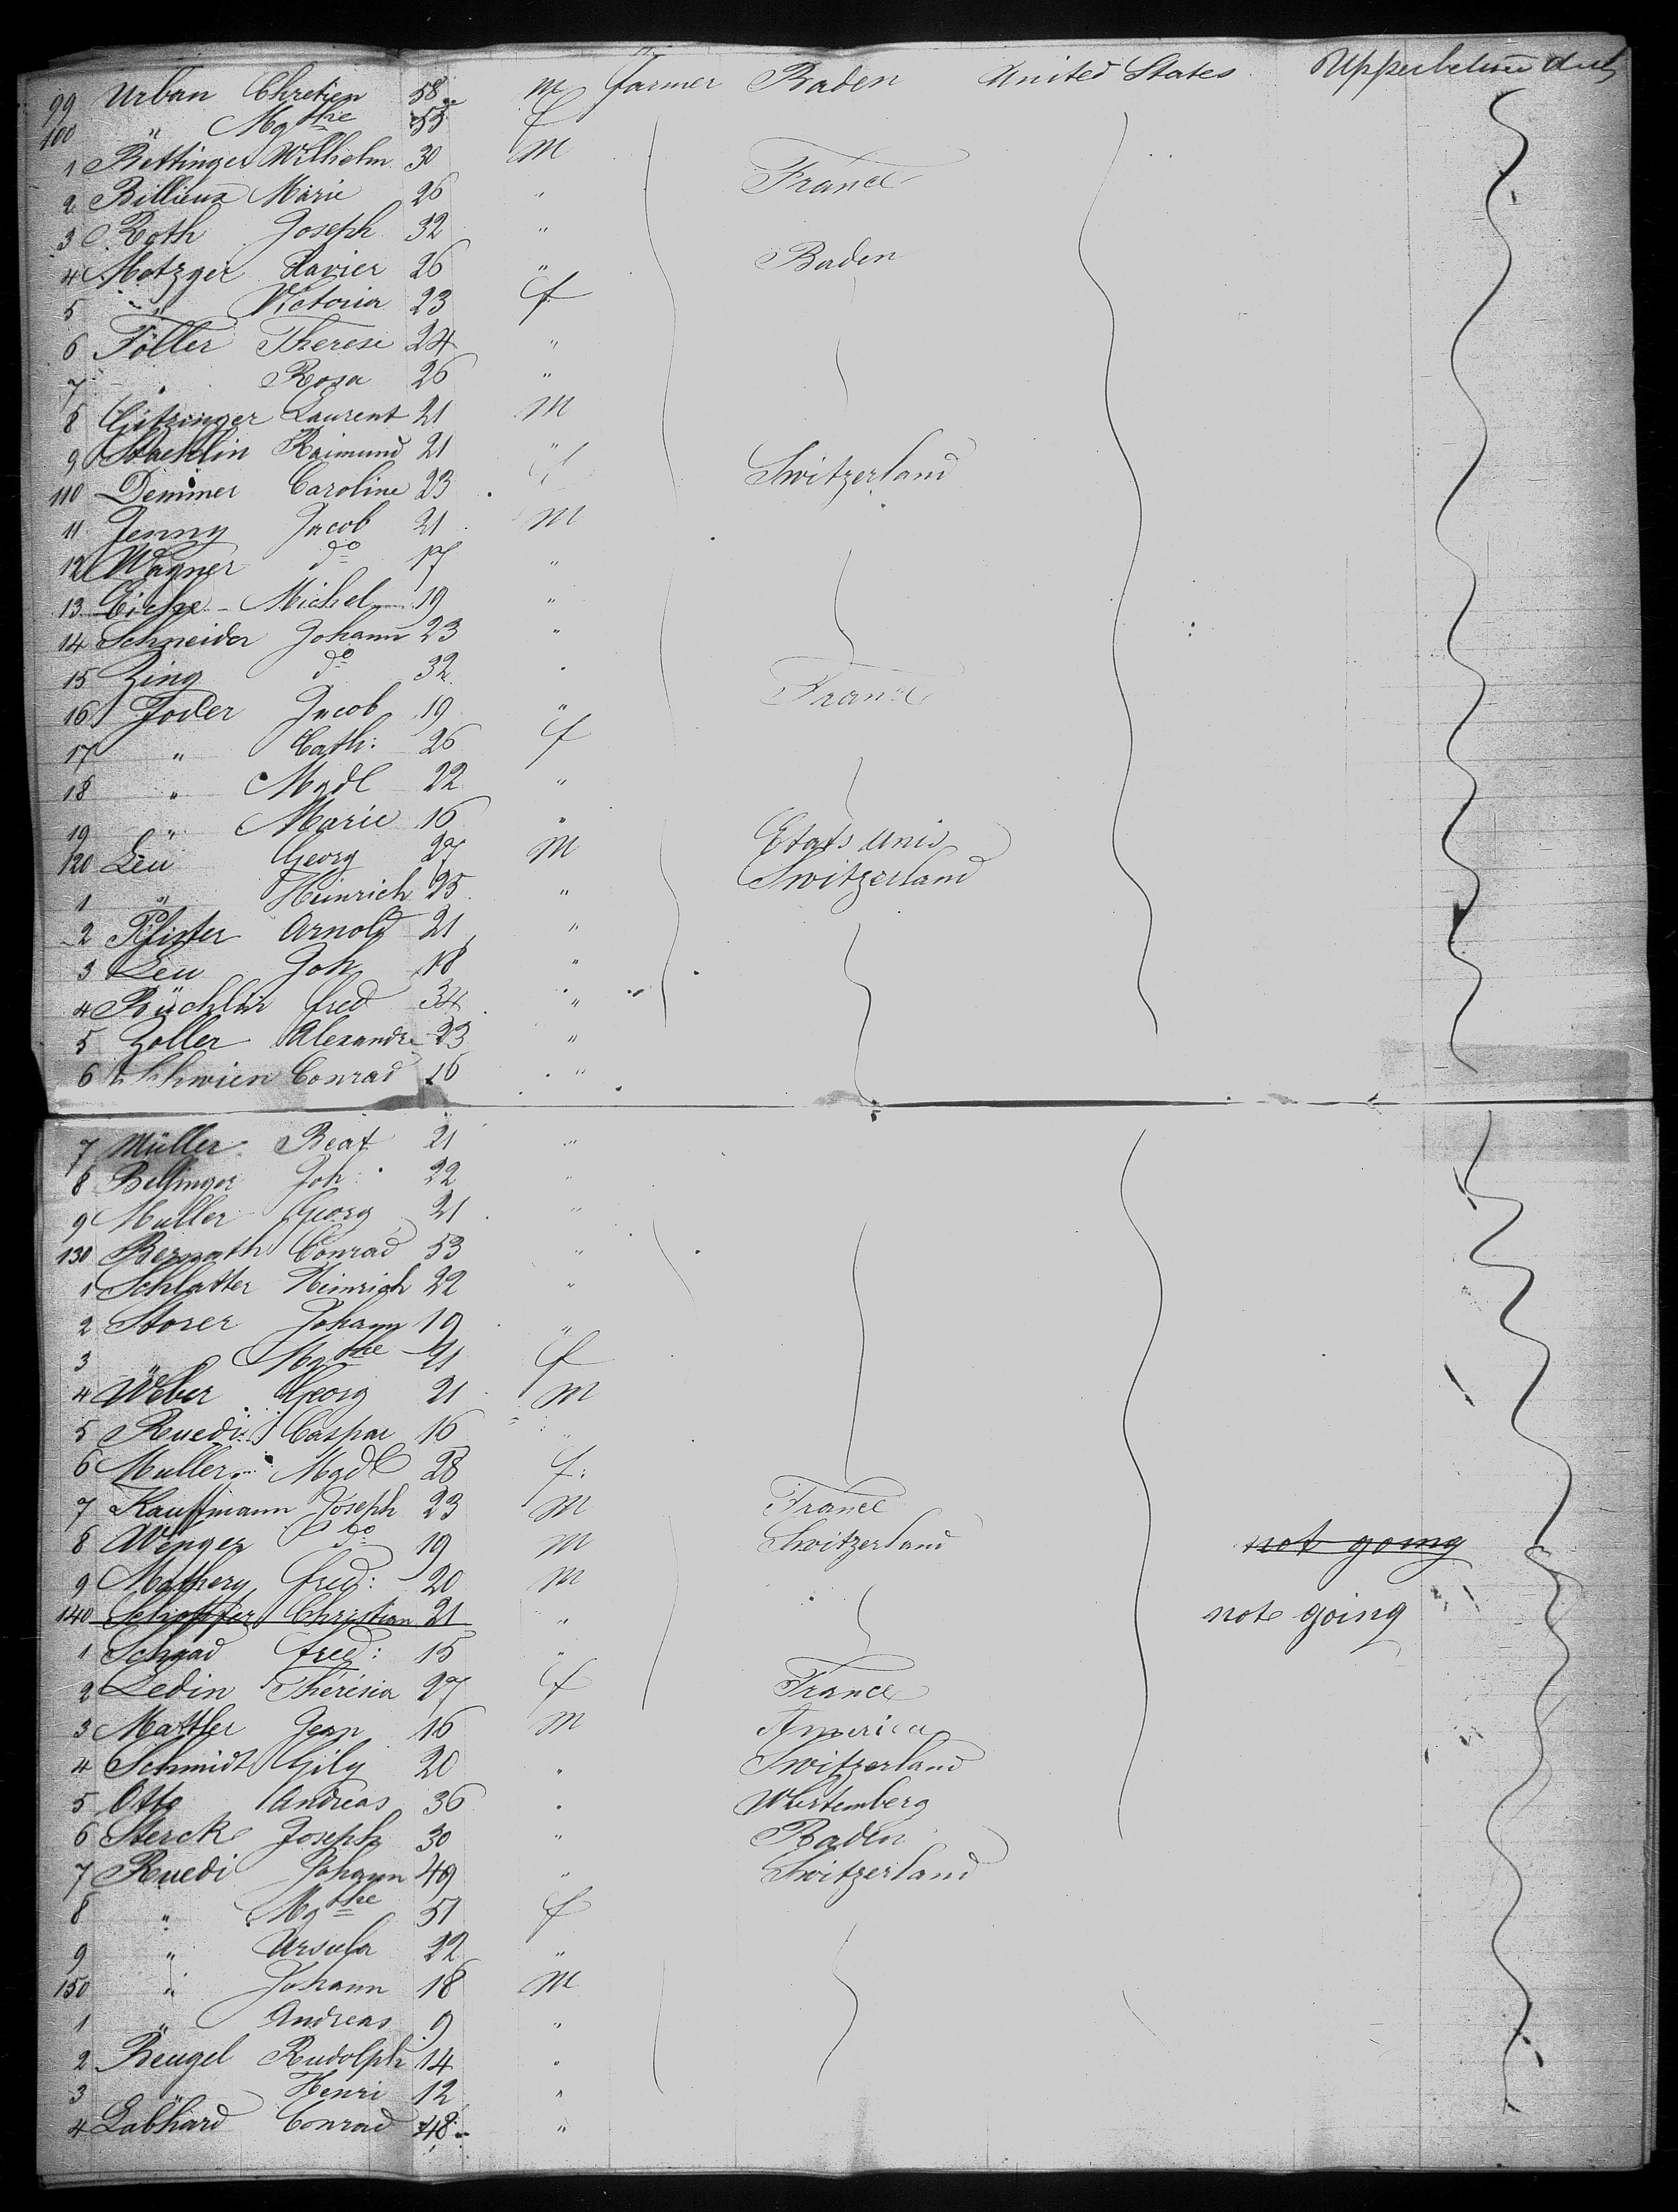 99 Urban Chretien 58 m farmer Baden United States Upper between decks
100 " Mgthe 55 f
1 Bettinger Wilhelm 30 M
2 Billieux Marie 26 " France
3 Roth Joseph 32 "
4 Metzger Xavier 26 " Baden
5 " Victoria 23 f
6 Föller Therese 24 "
7 " Rosa 26 "
8 Gitzinger Laurent 21 M
9 Staehlin Raimund 21 "
110 Demmer Caroline 23 f Switzerland
11 Jenny Jacob 21 M
12 Wagner do 17 "
13 Eiche Michel 19 "
14 Schneider Johann 23 "
15 Zing do 32 "
16 Joder Jacob 19 " France
17 " Cath: 26 f
18 " Mgdl 22 "
19 " Marie 16 "
120 Leu Georg 27 M Etats Unis
1 " Heinrich 25 " Switzerland
2 Pfister Arnold 21 "
3 Leu Joh 18 "
4 Büchlin fred 34 "
5 Zoller Alexandre 23 "
6 Schwien Conrad 16 "
7 Müller Beat 21 "
8 Bellinger Joh: 22 "
9 Muller Georg 21 "
130 Bernath Conrad 53 "
1 Schlatter Heinrich 22 "
2 Storer Johann 19 "
3 " Mgthe 21 f
4 Weber Georg 21 M
5 Ruedi Caspar 16 "
6 Muller Mgdl 28 f:
7 Kauffmann Joseph 23 M France
8 Wenger do 19 M Switzerland not going
9 Mathery fred: 20 M
140 Schoffer Christian 21 " not going
1 Schaad fred: 15 "
2 Ledin Thérésia 27 f France
3 Mattler Jean 16 M America
4 Schmidt Gily 20 " Switzerland
5 Otto Andreas 36 " Wurtemberg
6 Sterck Joseph 30 " Baden
7 Ruedi Johann 49 " Switzerland
8 " Mgthe 51 f
9 " Ursula 22 "
150 " Johann 18 M
1 " Andreas 9 "
2 Beugel Rudolph 14 "
3 " Henri 12 "
4 Labhard Conrad 48 "